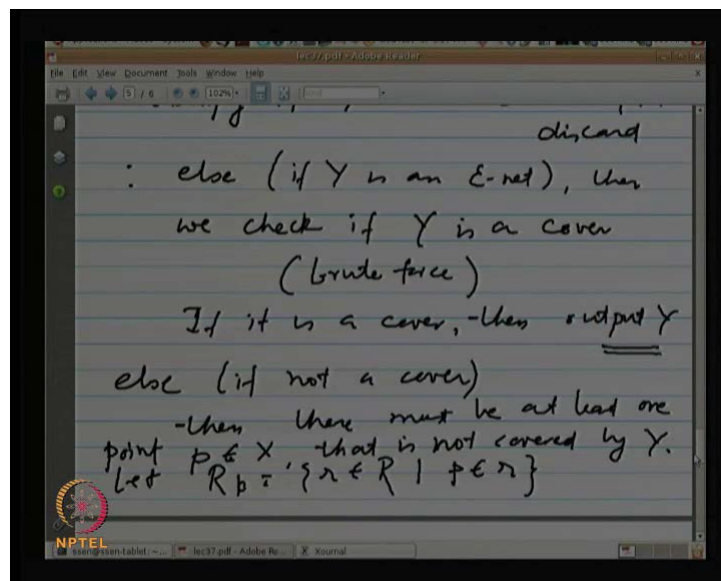 lec37.pdf - Adobe Reader
File Edit View Document Tools Window Help
5 / 6 102% Find
discard
: else (if Y is an ε-net), then
we check if Y is a cover
(brute force)
If it is a cover, then output Y
else (if not a cover)
then there must be at least one
point p ∈ X that is not covered by Y.
Let R_p = {r ∈ R | p ∈ r}
NPTEL
ssen@ssen-tablet: ~... lec37.pdf - Adobe Re... Xournal